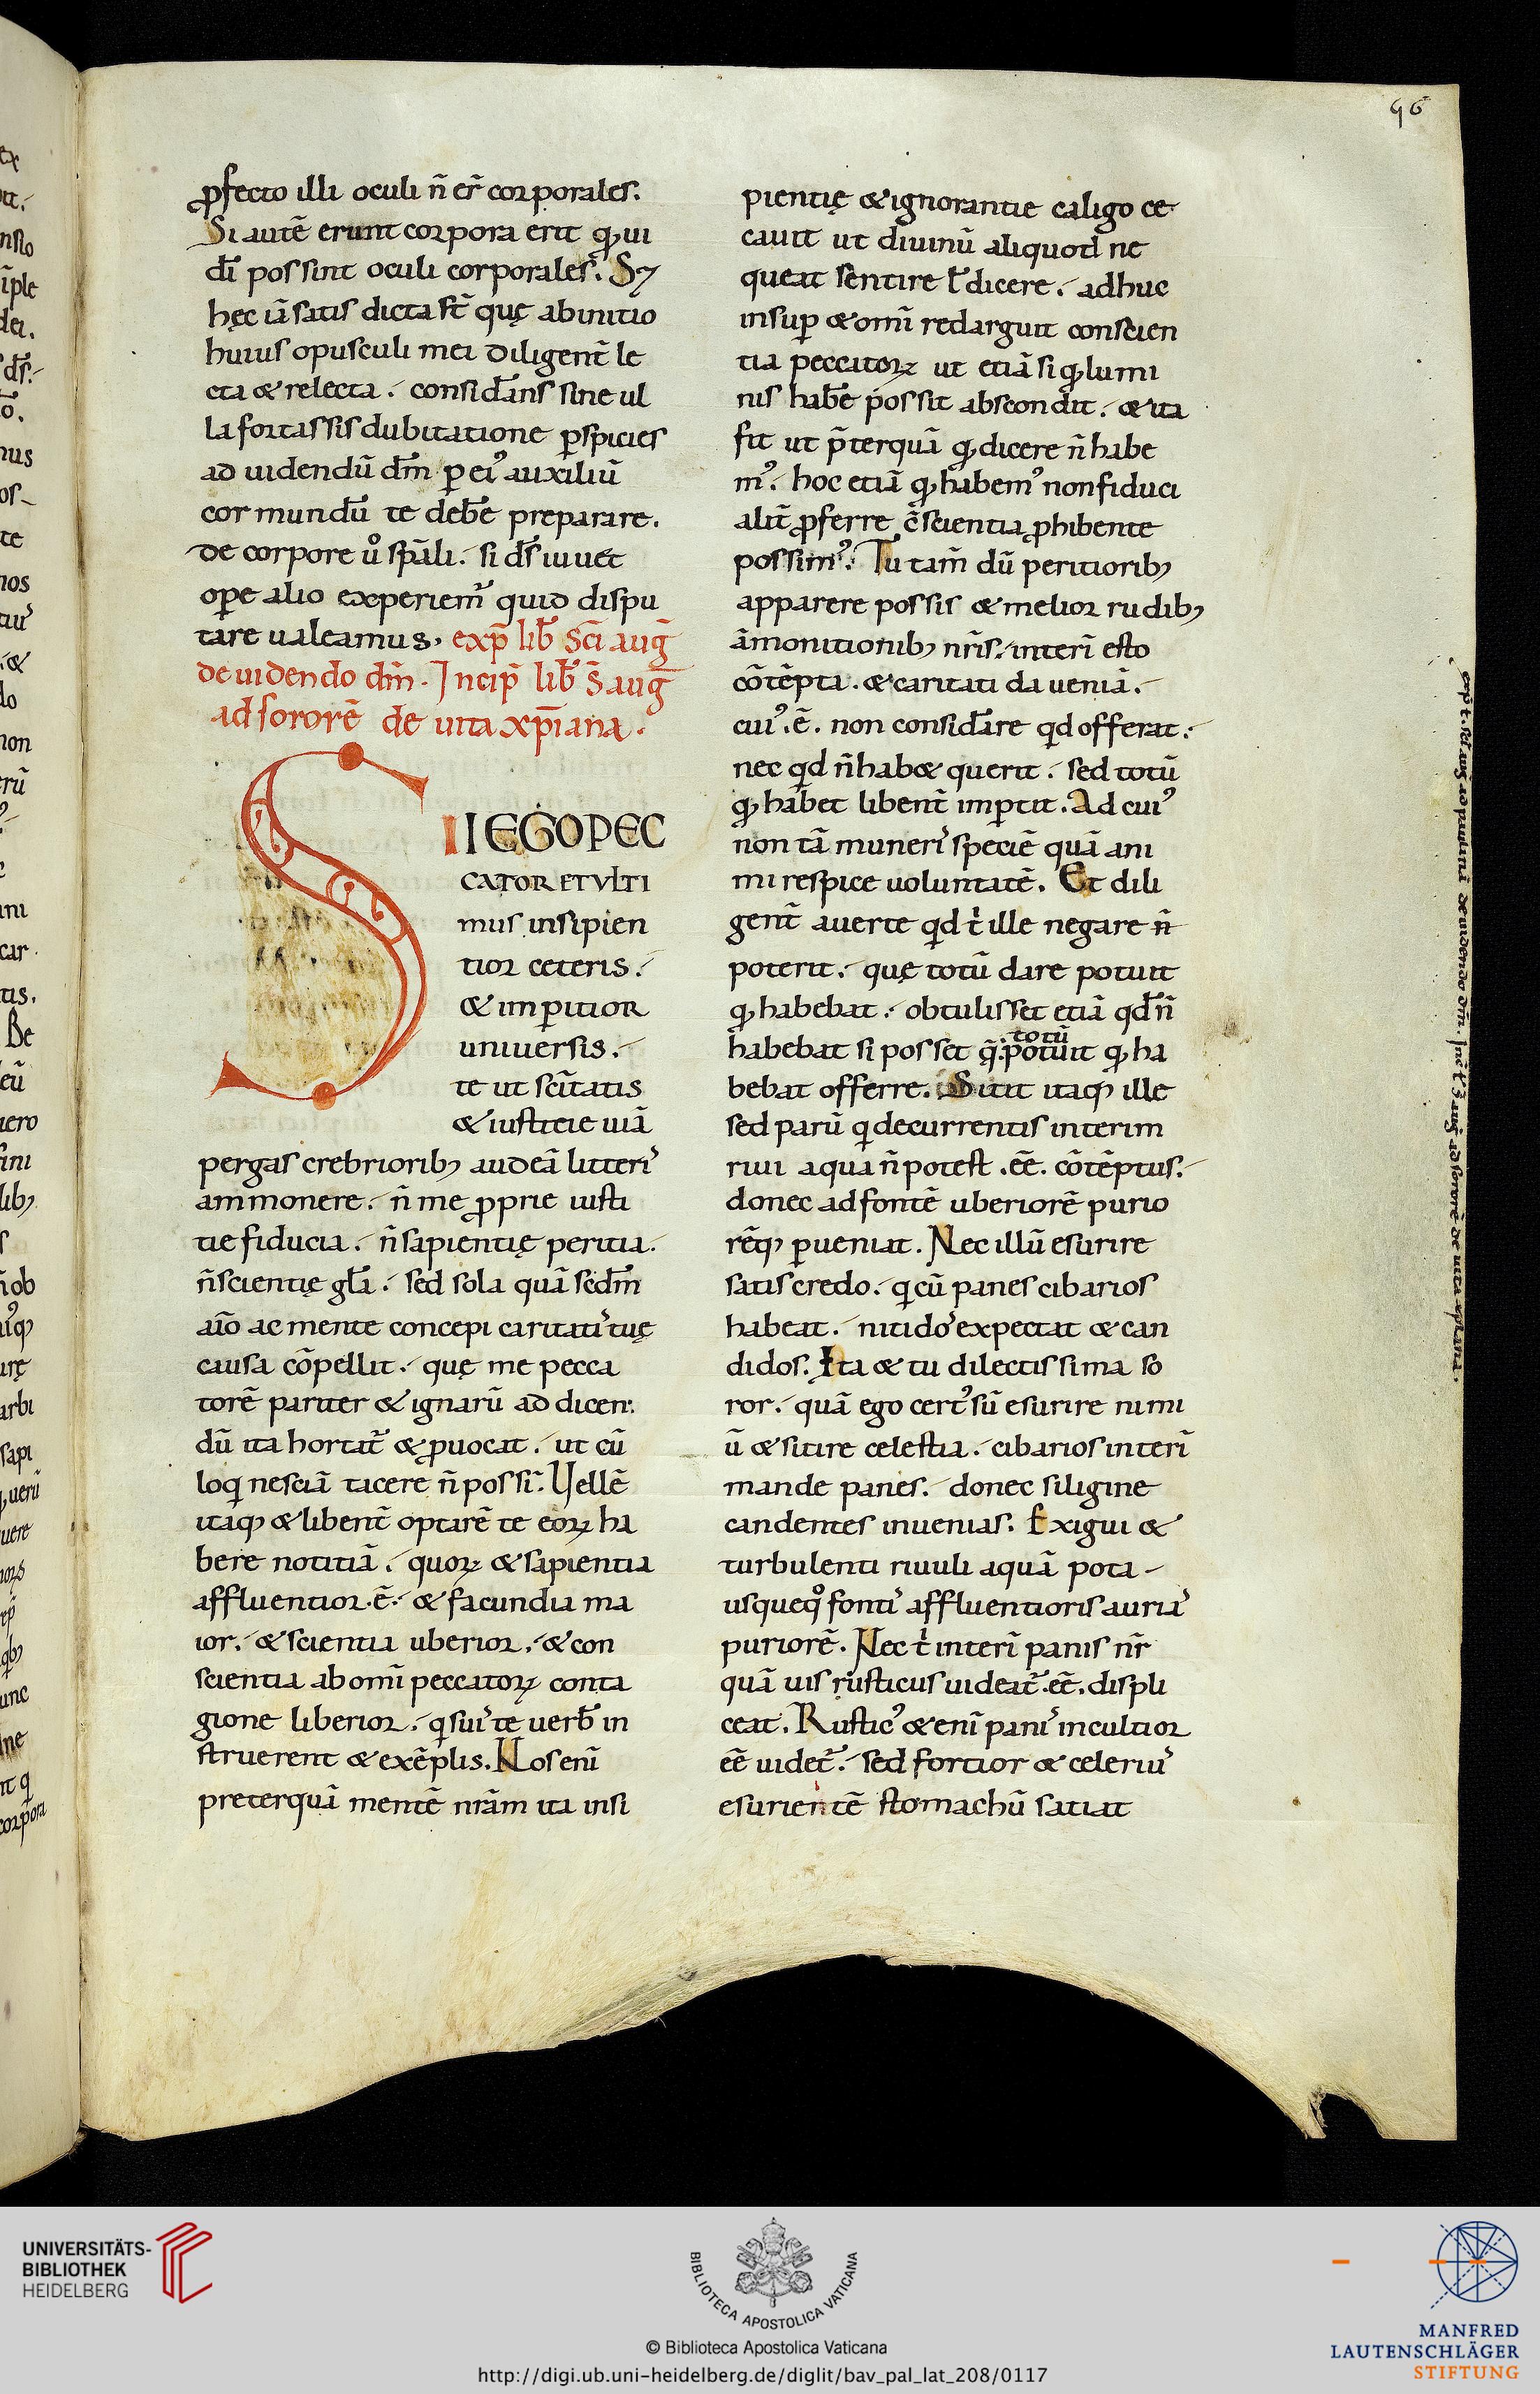 96
ꝓfecto illi oculi n̄ er̄ corporales.
Si autē erunt corpora erit qđ ui
d̄i possint oculi corporales. S;
hęc iā satis dicta st̄ quę ab initio
huius opusculi mei diligent̄ le
cta & relecta. consid̄ans sine ul
la fortassis dubitatione ꝑspicies
ad uidendū dm̄ ꝑ ei᾽ auxiliū
cor mundū te deb̄e preparare.
De corpore ů spāli. si ds̄ iuuet
oꝑe alio experiem̄ quid dispu
tare ualeamus. exp̄ lib̄ sc̄i auḡ
de uidendo dm̄. Incip̄ lib̄ s̄ auḡ
ad sororē de uita xp̄iana.
SI EGO PEC
CATOR ET VLTI
mus insipien
tior ceteris.
& imꝑitior
uniuersis.
te ut scītatis
& iustitie uiā
pergas crebriorib; audeā litteri᾽
ammonere. n̄ me ꝓprie iusti
tie fiducia. n̄ sapientię peritia.
n̄ scientię gl̄a. sed sola quā scd̄m
aīo ac mente concepi caritati᾽ tuę
causa cōpellit. quę me pecca
torē pariter & ignarū ad dicen
dū ita hortat̄ & ꝓuocat. ut cū
loqi nesciā tacere n̄ possī. Vellē
itaq; & libent̄ optarē te eoꝝ ha
bere notitiā. quoꝝ & sapientia
affluentior .ē. & facundia ma
ior. & scientia uberior. & con
scientia ab omī peccatoꝝ conta
gione liberior. qi sui᾽ te uerb̄ in
struerent & exēplis. Nos enī
preterquā mentē nr̄am ita insi
pientię & ignorantie caligo ce
cauit ut diuinū aliquod ne
queat sentire ł dicere. adhuc
insuꝑ & omī redarguit conscien
tia peccatoꝝ ut etiā si qđ lumi
nis hab̄e possit abscondit. & ita
fit ut p̄terquā qđ dicere n̄ habe
m᾽. hoc etiā qđ habem᾽ non fiduci
alit̄ ꝓferre c̄scientia ꝓhibente
possim᾽. Tu tam̄ dū peritiorib;
apparere possis & melior rudib;
āmonitionib; nr̄is. interī esto
cōtēpta. & caritati da ueniā.
cui᾽ .ē. non consid̄are qd offerat.
nec qd n̄ hab& querit. sed totū
qđ habet libent̄ imꝑtit. Ad cui᾽
non tā muneri᾽ speciē quā ani
mi respice uoluntatē. Et dili
gent̄ auerte qd t̄ ille negare n̄
poterit. quę totū dare potuit
qđ habebat. obtulisset etiā qd n̄
habebat si posset q̄ totū potuit qđ ha
bebat offerre. Sitit itaq; ille
sed parū qi decurrentis interim
riui aqua n̄ potest .ēē. cōtēptus.
donec ad fontē uberiorē purio
rēq; ꝑueniat. Nec illū esurire
satis credo. qi cū panes cibarios
habeat. nitido᾽ expectat & can
didos. Ita & tu dilectissima so
ror. quā ego cert᾽ sū esurire nimi
ū & sitire celestia. cibarios interī
mande panes. donec siligine
candentes inuenias. Exigui &
turbulenti riuuli aquā pota
usquequo fonti᾽ affluentioris auria᾽
puriorē. Nec t̄ interī panis nr̄
quā uis rusticus uideat̄ .ēē. displi
ceat. Rustic᾽ & enī pani᾽ incultior
ēē uidet̄. sed fortior & celeriu᾽
esurientē stomachū satiat
UNIVERSITÄTS-
BIBLIOTHEK
HEIDELBERG
BIBLIOTECA APOSTOLICA VATICANA
© Biblioteca Apostolica Vaticana
http://digi.ub.uni-heidelberg.de/diglit/bav_pal_lat_208/0117
MANFRED
LAUTENSCHLÄGER
STIFTUNG